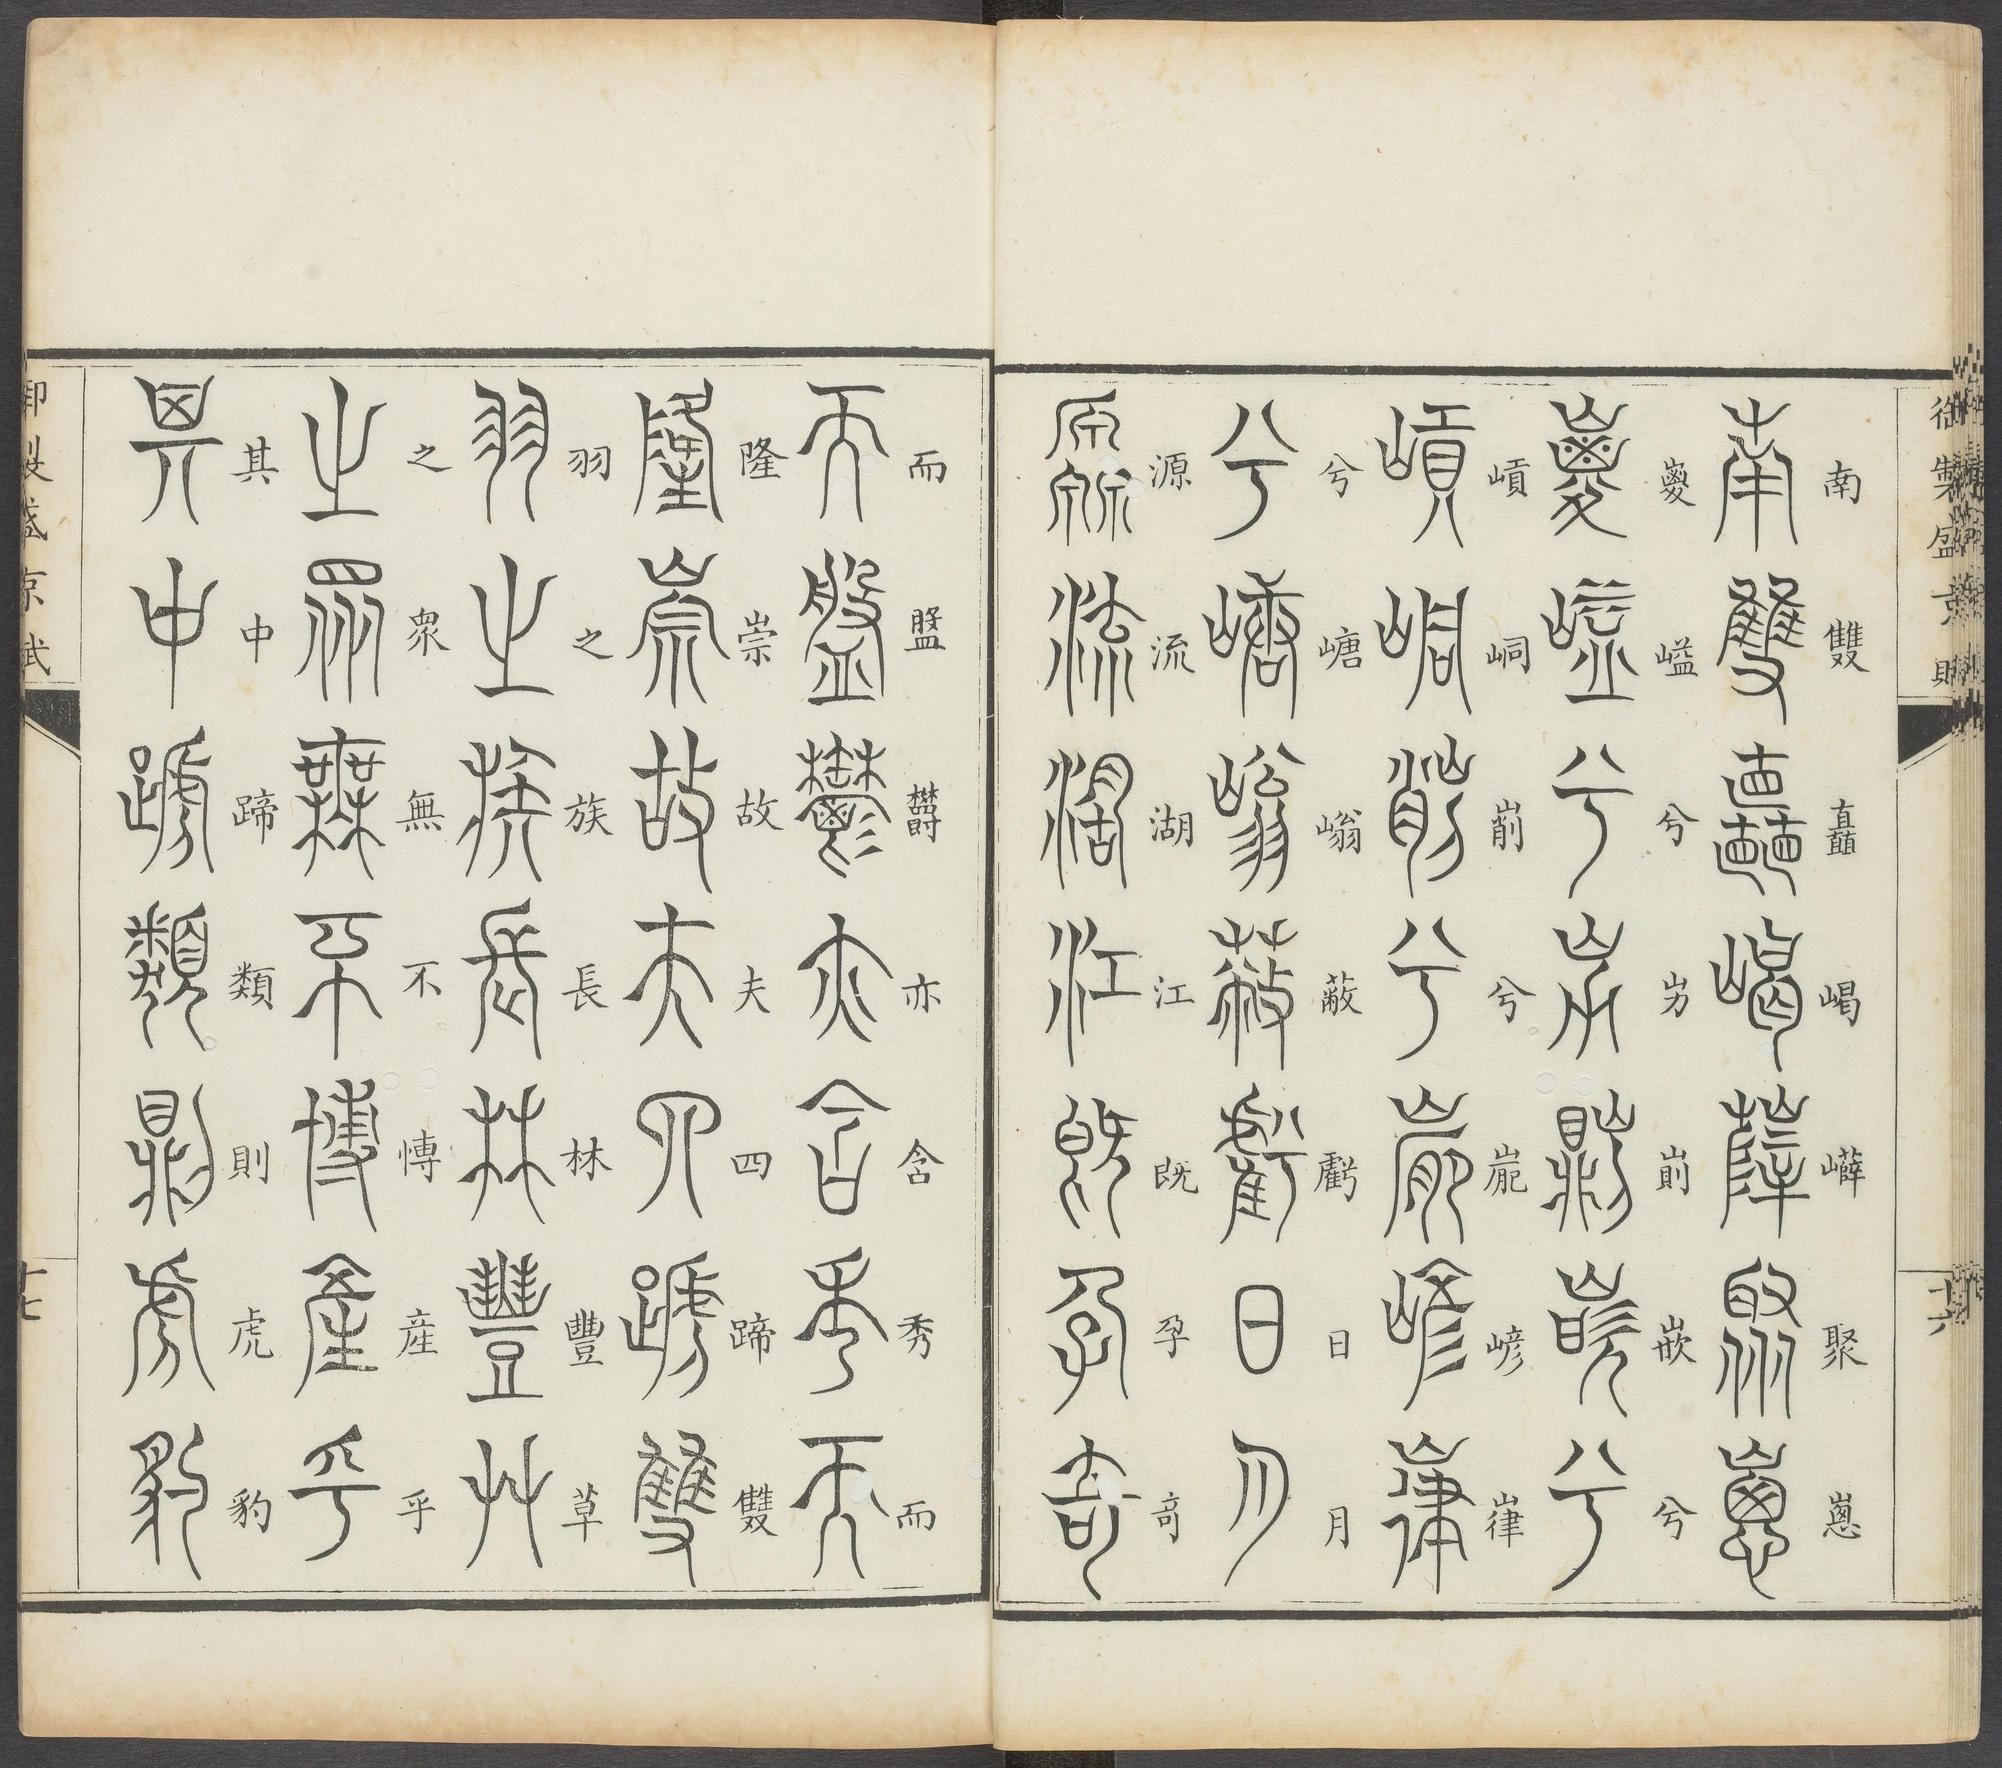 御製盛京賦 十六
南雙矗嵑嶭聚
嵏嵫兮屴崱嵌兮
峒兮嵃嵂
兮嵣嵡蔽虧日月
源流湖江既孕奇
而盤鬱亦含秀而
隆崇故夫四蹄雙
羽之族長林豐草
之衆無不博產乎
其中蹄類則虎豹
御製盛京賦 十七